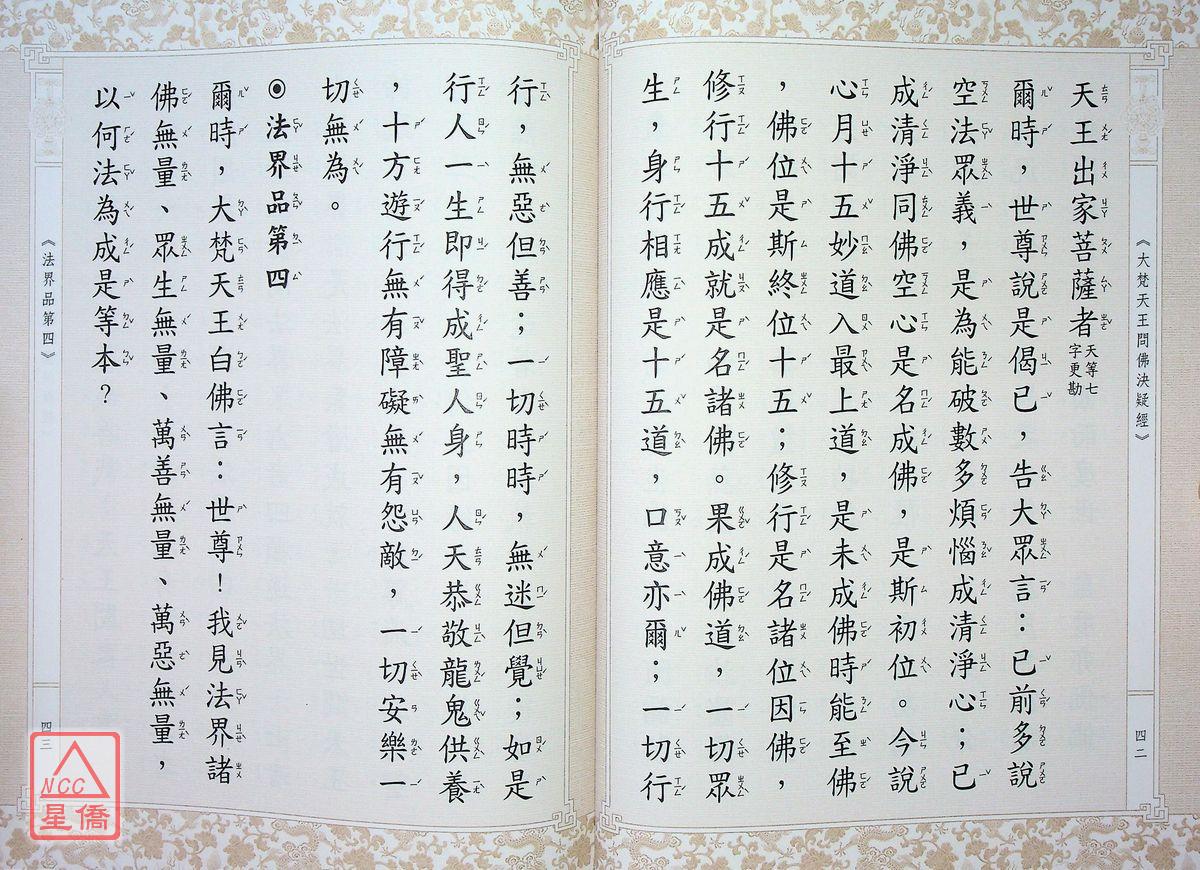 《大梵天王問佛決疑經》
四二
天王出家菩薩者天等七字更勘
爾時，世尊說是偈已，告大眾言：已前多說
空法眾義，是為能破數多煩惱成清淨心；已
成清淨同佛空心是名成佛，是斯初位。今說
心月十五妙道入最上道，是未成佛時能至佛
，佛位是斯終位十五；修行是名諸位因佛，
修行十五成就是名諸佛。果成佛道，一切眾
生，身行相應是十五道，口意亦爾；一切行
行，無惡但善；一切時時，無迷但覺；如是
行人一生即得成聖人身，人天恭敬龍鬼供養
，十方遊行無有障礙無有怨敵，一切安樂一
切無為。
◉法界品第四
爾時，大梵天王白佛言：世尊！我見法界諸
佛無量、眾生無量、萬善無量、萬惡無量，
以何法為成是等本？
《法界品第四》
四三
NCC
星僑